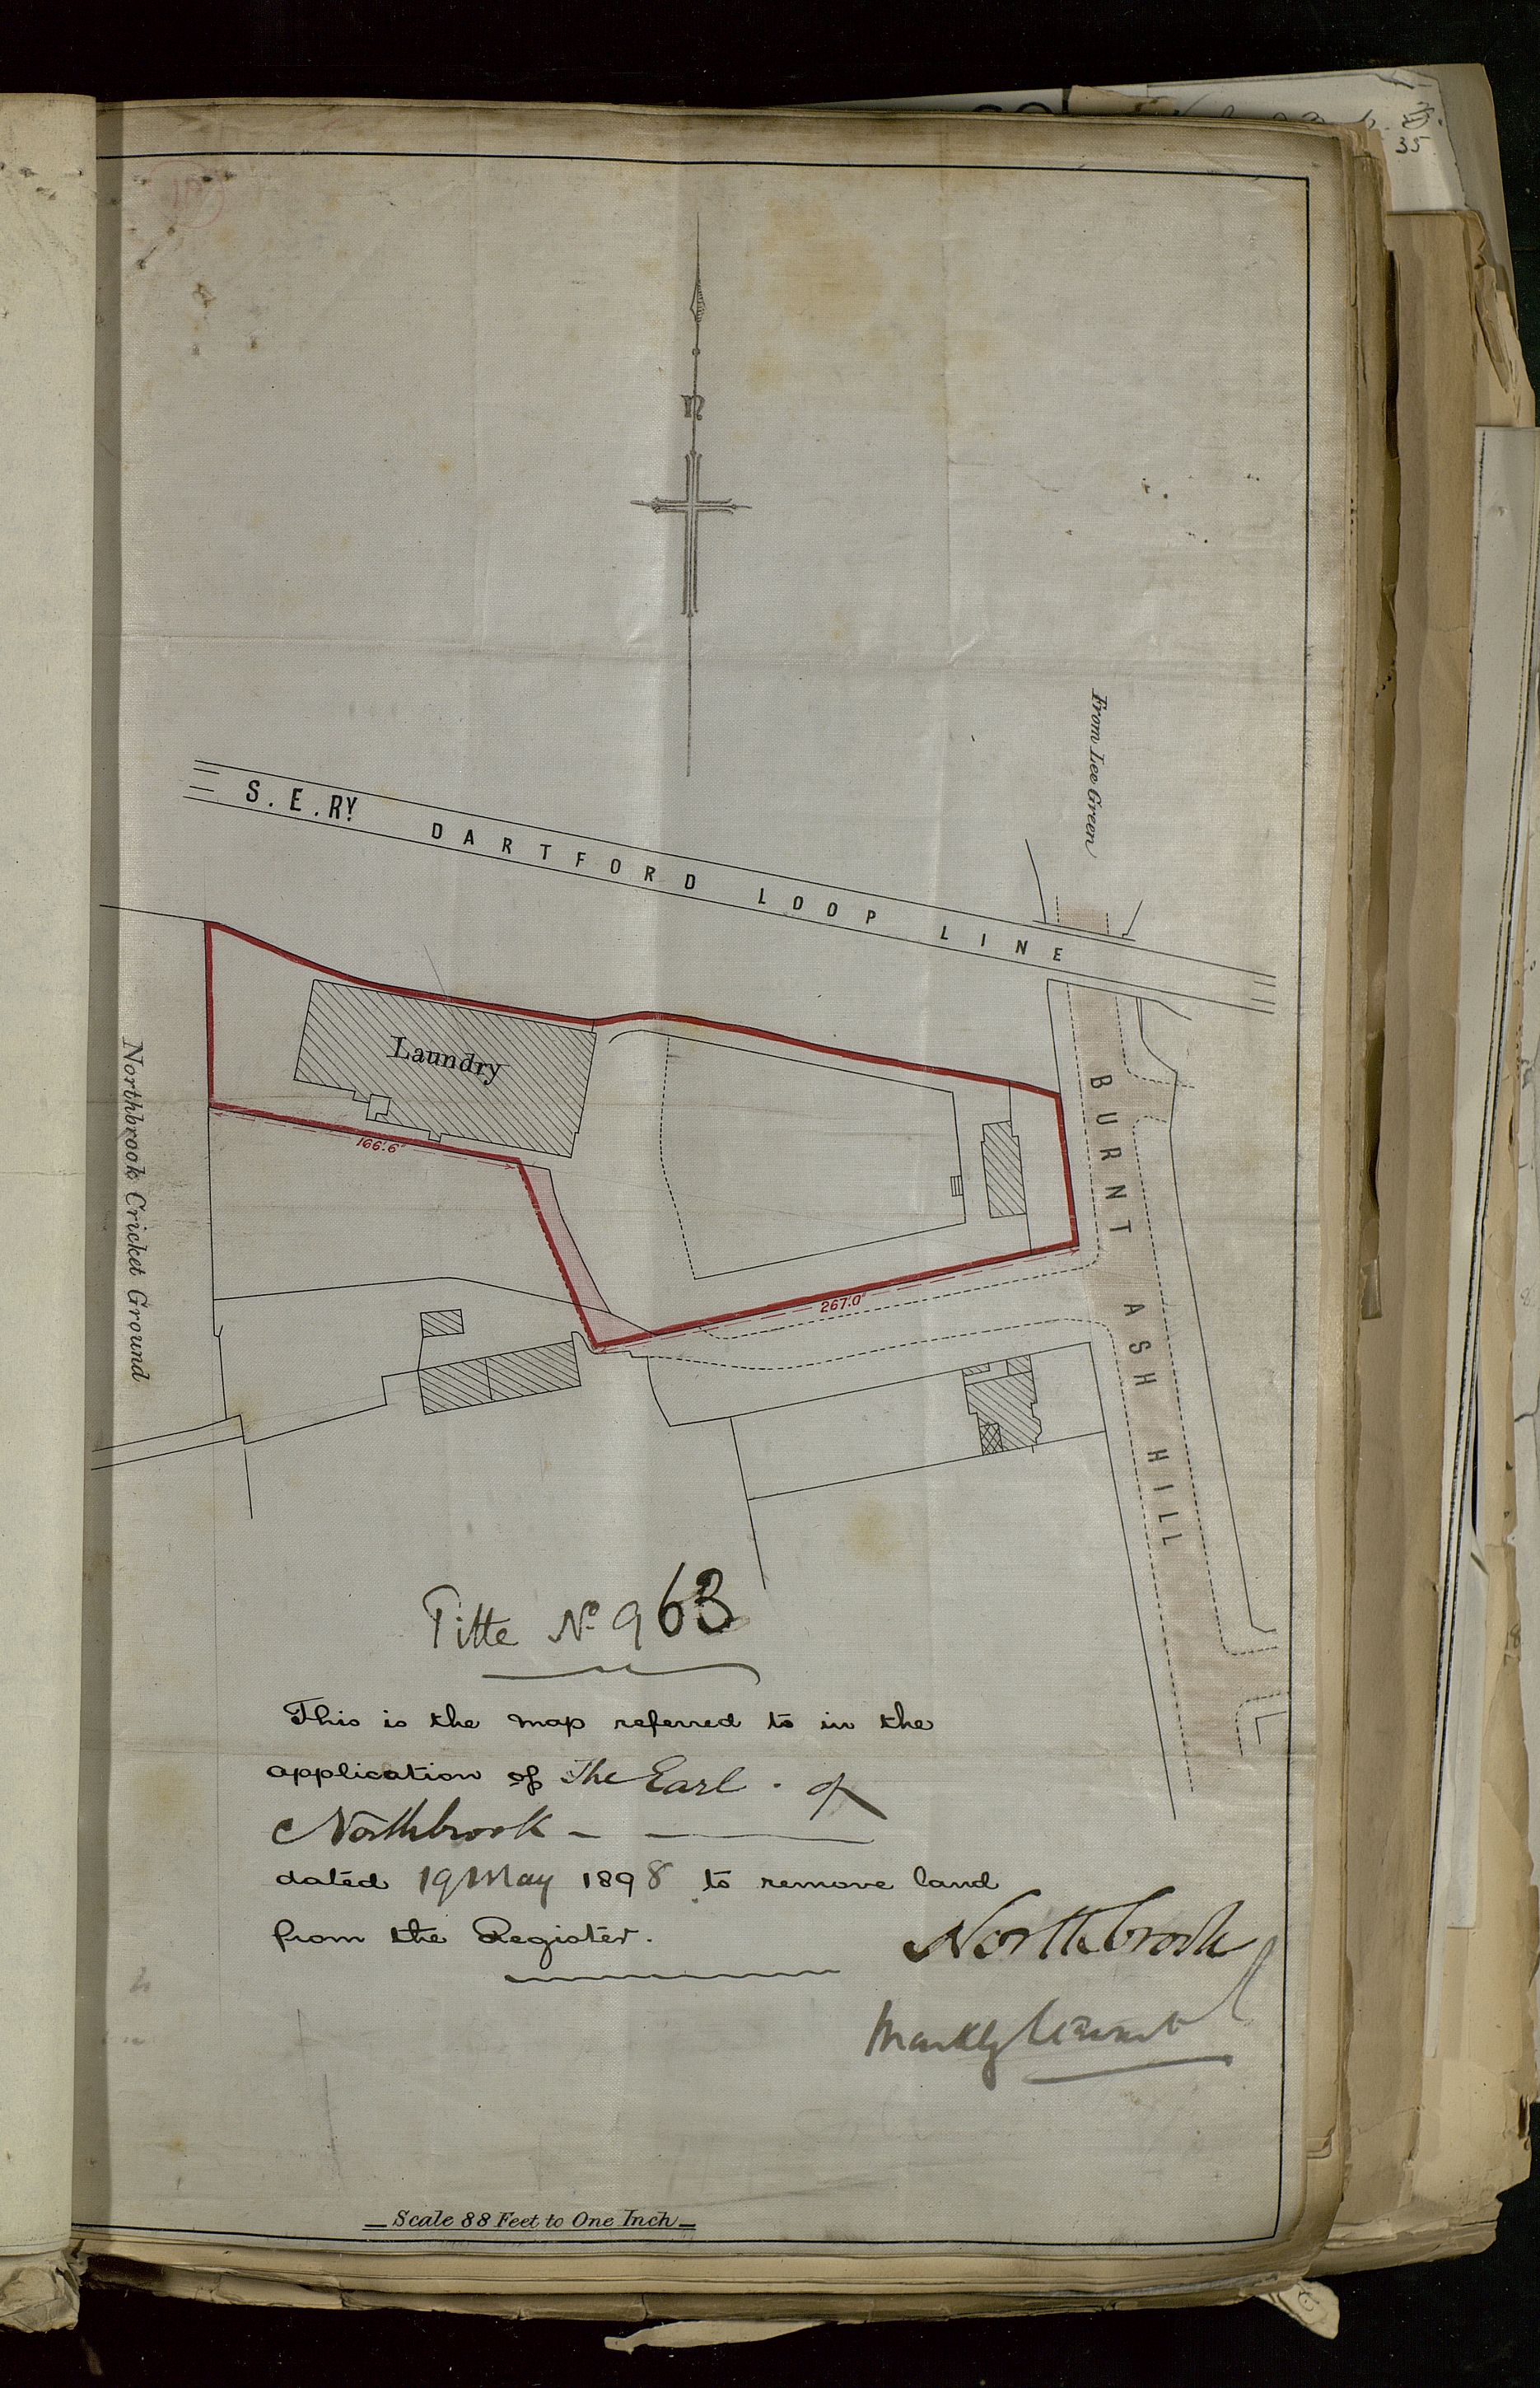 35
N
From Lee Green
S. E. RY. DARTFORD LOOP LINE
Laundry
166'.6"
Northbrook Cricket Ground
267'.0"
BURNT ASH HILL
Title No 963
This is the map referred to in the
application of The Earl . of
Northbrook —
dated 19 May 1898 to remove land
from the Register.
Northbrook
Scale 88 Feet to One Inch